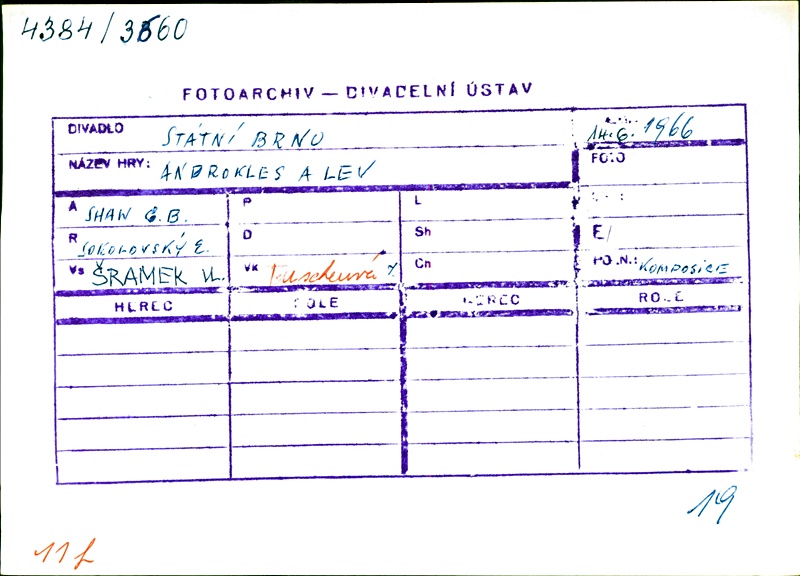 4384/3560
FOTOARCHIV — DIVADELNÍ ÚSTAV
DIVADLO STÁTNÍ BRNO
14.6. 1966
NÁZEV HRY: ANDROKLES A LEV
FOTO
A SHAW G.B. P L
R SOKOLOVSKÝ E. D Sh
Vs ŠRAMEK VL. VK Ch
POZN.: KOMPOSICE
HEREC ROLE HEREC ROLE
19
11f